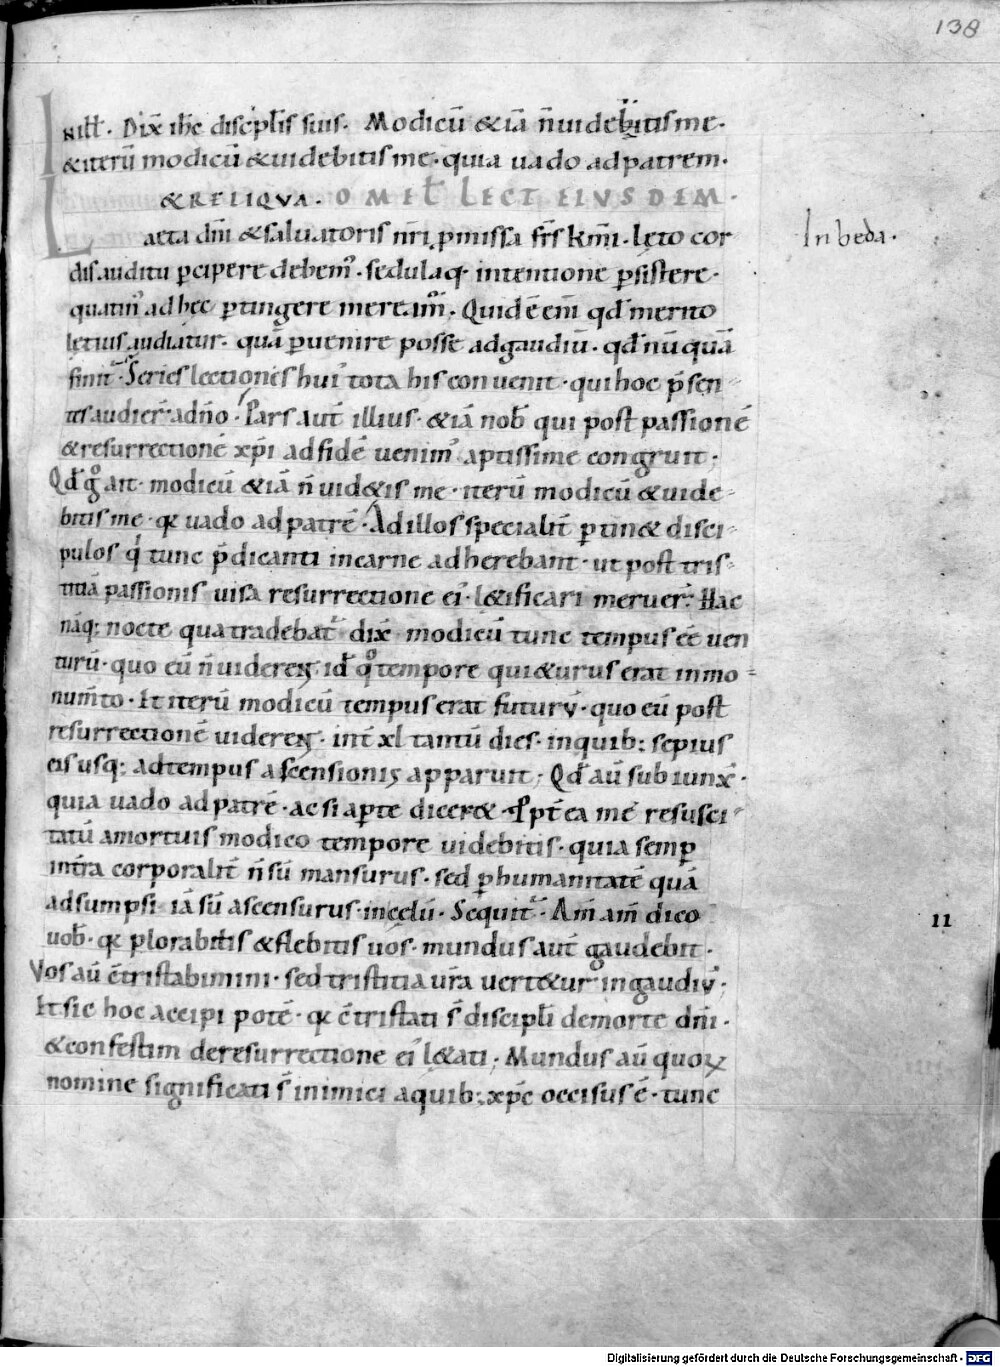 138
IN ill̄t. Dix̄ ihc̄ discipl̄is suis. Modicū &iā n̄ uidebitis me.
&iterū modicū &uidebitis me. quia uado ad patrem.
&RELIQVA. OMEL̄ LECT EIVSDEM.
Laeta dn̄i &saluatoris nr̄i ꝓmissa fr̄s km̄i. lęto cor
In beda.
dis auditu ꝑcipere debem᾽. sedulaq; intentione ꝑsistere.
quatin᾽ ad hęc ꝑtingere meream᾽. Quid ē eni᷒ qd̄ merito
lętius audiatur. quā ꝑuenire posse ad gaudiū. qd̄ nūquā
finit᾽. Series lectionis hui᾽ tota his conuenit. qui hoc p̄sen
tes audier̄ a dn̄o. Pars aut̄ illius. &iā nob̄ qui post passionē
&resurrectionē xp̄i ad fidē uenim᾽ aptissime congruit.
Qd̄ gͦ ait. modicū &iā n̄ uid&is me. iterū modicū &uide-
bitis me. qꝛ uado ad patrē. Ad illos specialit̄ ꝑtin& disci-
pulos qⁱ tunc p̄dicanti in carne adherebant. ut post tris-
titiā passionis uisa resurrectione ei᾽ l&ificari meruer̄. Hac
nāq; nocte qua tradebat᾽ dix̄ modicū tunc tempus ēē uen
turū. quo eū n̄ uiderent. id̄ qͦ tempore quieturus erat in mo=
num̄to. Et iterū modicū tempus erat futurū. quo eū post
resurrectionē uiderent. int̄ xl tantū dies. in quib; sepius
eis usq; ad tempus ascensionis apparuit; Qd̄ aū subiunx̄.
quia uado ad patrē. ac si aꝑte dicer&. Ꝓpt̄ea me resusci-
tatū a mortuis modico tempore uidebitis. quia semꝑ
int̄ra corporalit̄ n̄ sū mansurus. sed ꝑ humanitatē quā
adsumpsi iā sū ascensurus in cęlū. Sequit᾽. Am̄ am̄ dico
11
uob̄. qꝛ plorabitis &flebitis uos. mundus aut̄ gaudebit.
Vos aū c̄tristabimini. sed tristitia ur̄a uert&ur in gaudiū;
Et sic hoc accipi potē. qꝛ c̄tristati s̄ discipl̄i de morte dn̄i.
&confestim de resurrectione ei᾽ l&ati; Mundus aū quoꝝ
nomine significati s̄ inimici a quib; xp̄c occisus ē. tunc
Digitalisierung gefördert durch die Deutsche Forschungsgemeinschaft - DFG